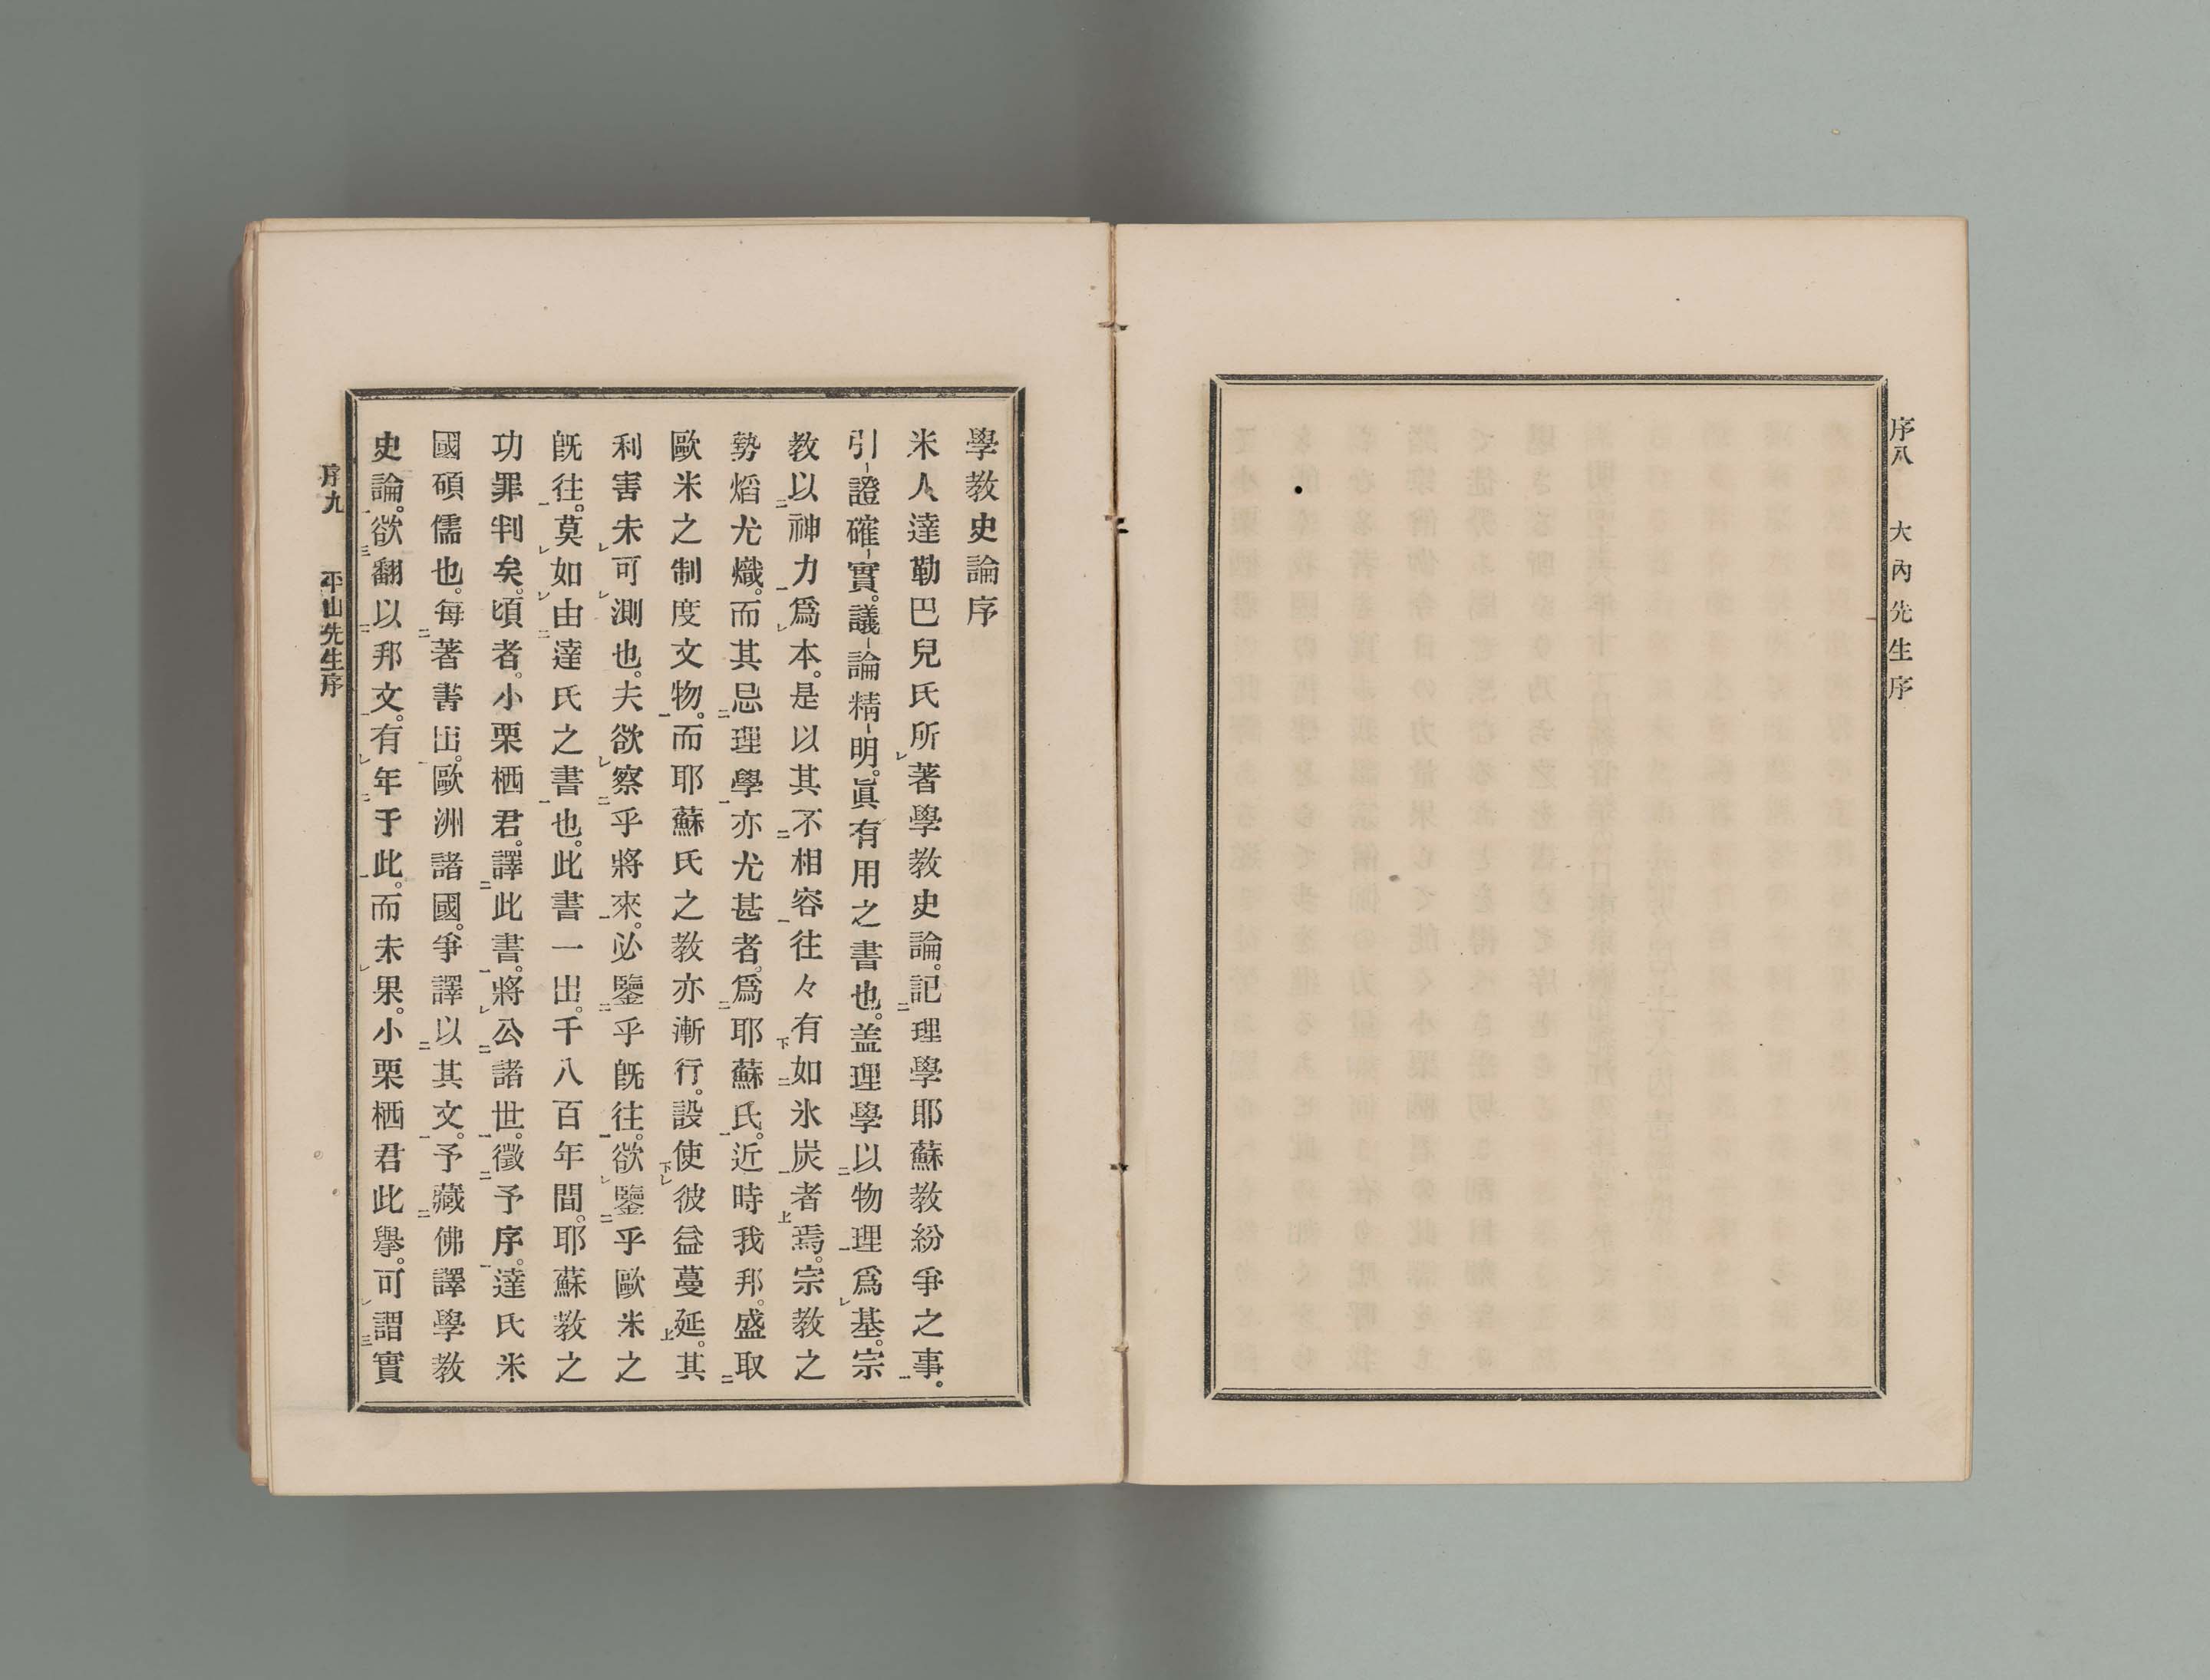 序八　大內先生序
學教史論序
米人達勒巴兒氏所㆑著學教史論。記㆘理學耶蘇教紛爭之事㆒。
引-證確-實。議-論精-明。眞有用之書也。盖理學以㆓物理㆒爲㆑基。宗
教以㆓神力㆒爲㆑本。是以其不㆓相容㆒往々有㆘如㆓氷炭㆒者㆖焉。宗教之
勢熖尤熾。而其忌㆓理學㆒亦尤甚者。爲㆓耶蘇氏㆒。近時我邦。盛取㆓
歐米之制度文物㆒。而耶蘇氏之教亦漸行。設使㆘㆑彼益蔓延㆖。其
利害未㆑可㆑測也。夫欲㆑察㆓乎將來㆒。必鑒㆓乎既往㆒。欲㆑鑒㆓乎歐米之
既往㆒。莫㆑如㆑由㆓達氏之書㆒也。此書一出。千八百年間。耶蘇教之
功罪判矣。頃者。小栗栖君。譯㆓此書㆒。將㆑公㆓諸世㆒。徵㆓予序㆒。達氏米
國碩儒也。每㆓著書出㆒。歐洲諸國。爭譯以㆓其文㆒。予藏㆓佛譯學教
史論㆒。欲㆘翻以㆓邦文㆒。有㆑年㆓于此㆒。而未㆑果。小栗栖君此擧。可㆑謂㆘實
序九　平山先生序